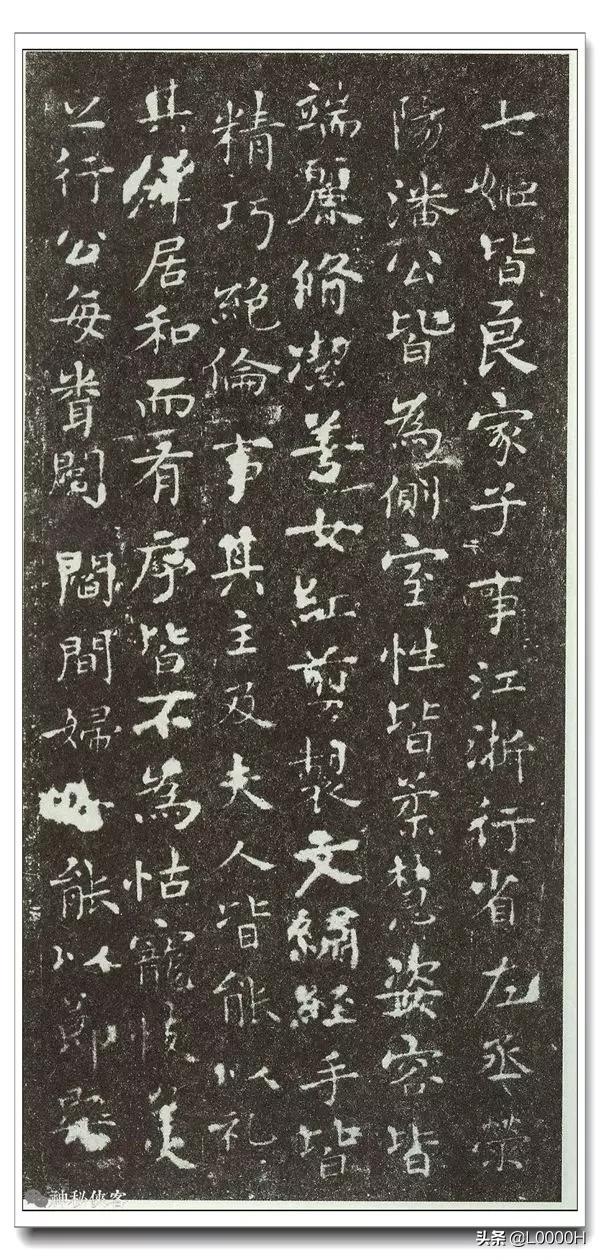 七姬皆良家子事江浙行省左丞榮
陽潘公皆為側室性皆柔慧姿容皆
端麗脩潔善女紅剪製文繡經手皆
精巧絕倫事其主及夫人皆能以礼
其羣居和而有序皆不為怙寵忮美
之行公每閻間婦能以節
神秘侠客
头条 @L0000H